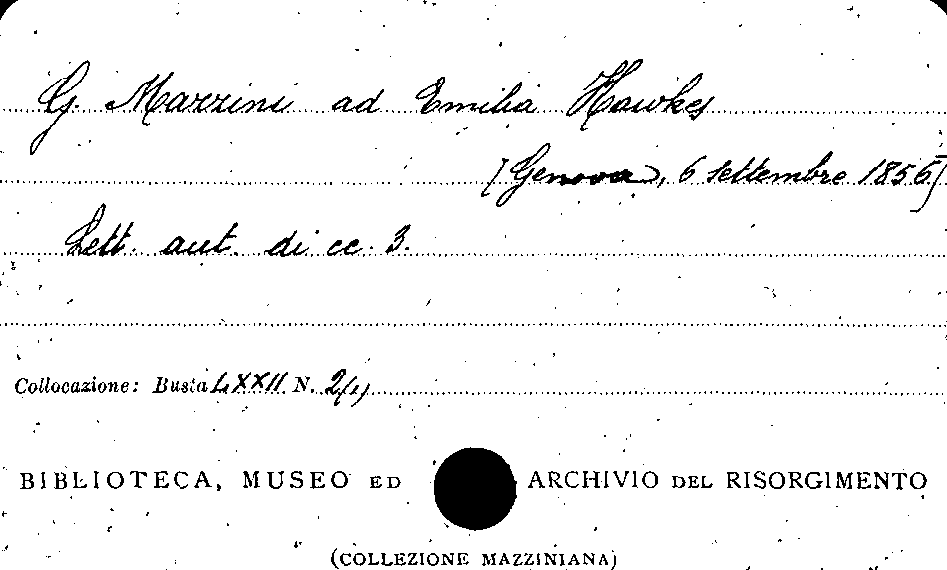 G. Mazzini ad Emilia Hawkes
[Genova, 6 settembre 1856]
Lett. aut. di cc. 3.
Collocazione: Busta LXXII N. 2(1)
BIBLIOTECA, MUSEO ED ARCHIVIO DEL RISORGIMENTO
(COLLEZIONE MAZZINIANA)